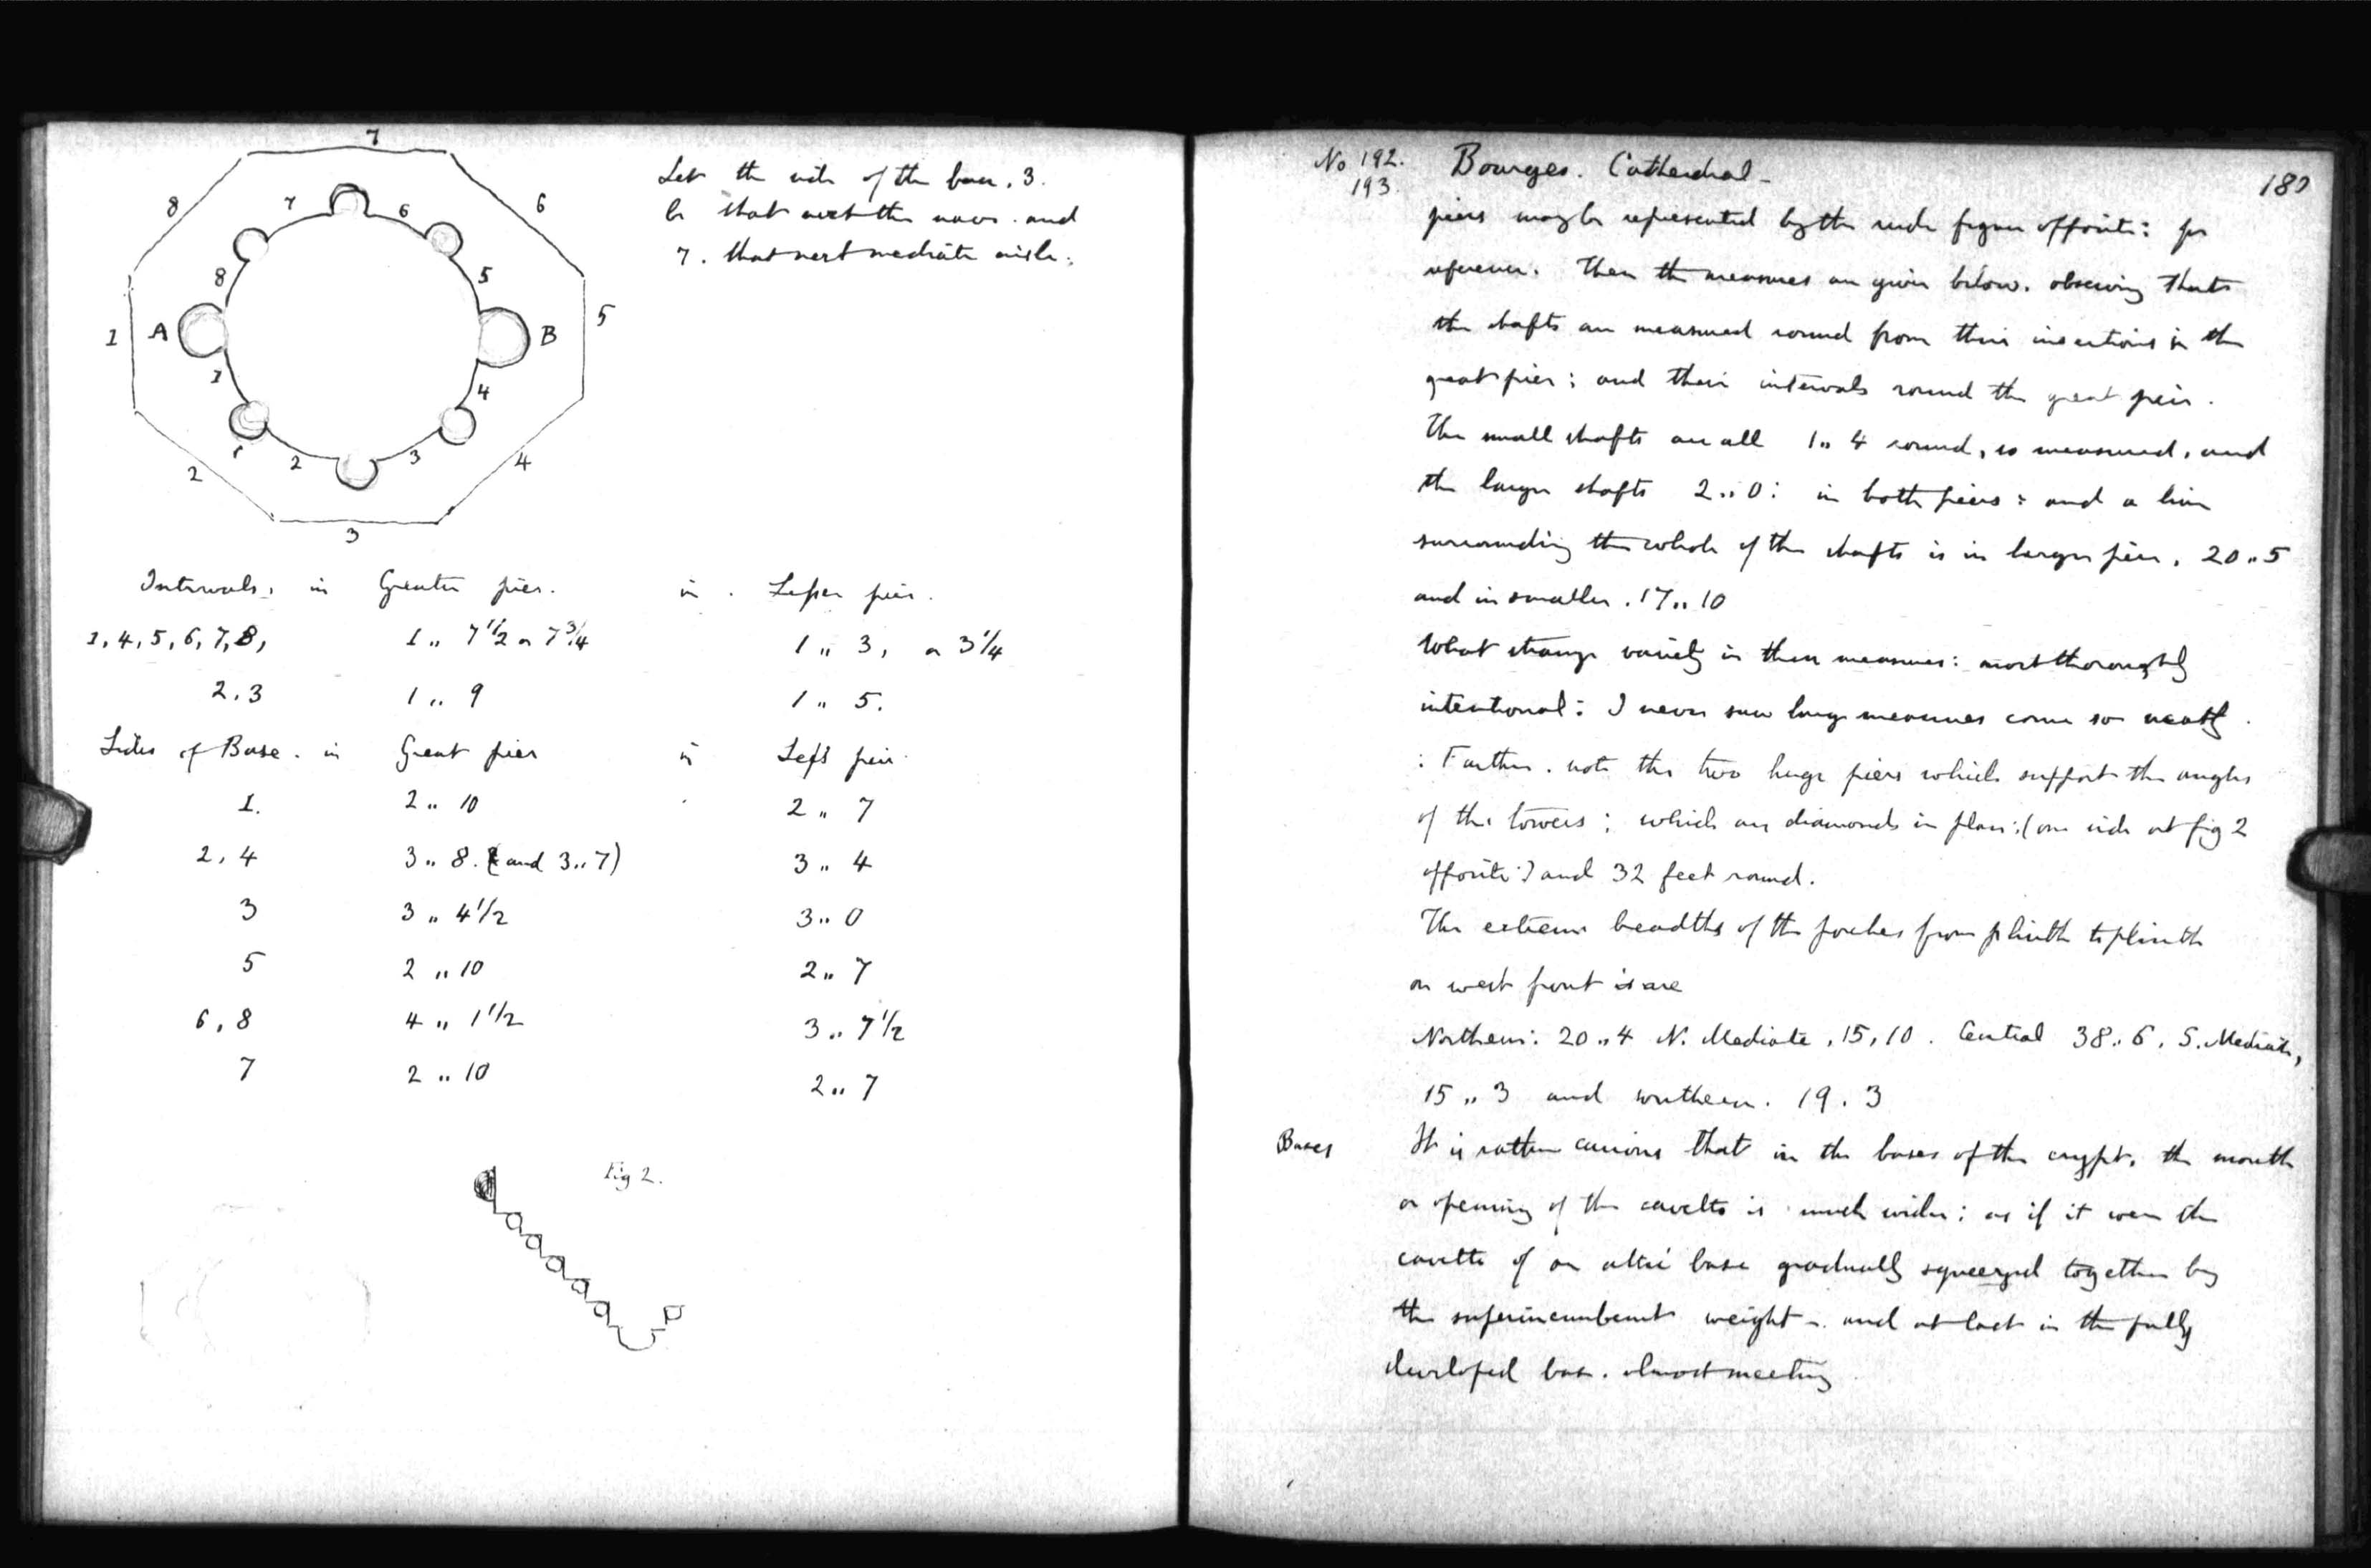 7
8
6
7
6
8
5
1
A
B
5
1
4
2
3
2
4
3
Let the side of the base, 3.
be that next the nave. and
7. that next mediate aisle:
Intervals, in Greater pier. in. Lesser pier.
1, 4, 5, 6, 7, 8, 1 „ 7 1/2 or 7 3/4 1 „ 3, or 3 1/4
2. 3 1 „ 9 1 „ 5.
Sides of Base. in Great pier in Less pier.
1. 2 „ 10 2 „ 7
2, 4 3 „ 8. (and 3 „ 7) 3 „ 4
3 3 „ 4 1/2 3 „ 0
5 2 „ 10 2 „ 7
6, 8 4 „ 1 1/2 3 „ 7 1/2
7 2 „ 10 2 „ 7
Fig 2.
No 192. Bourges. Cathedral -
193.
piers may be represented by the rude figure opposite: for
reference. Then the measures are given below. observing that
the shafts are measured round from their insertions in the
great pier; and their intervals round the great pier.
The small shafts are all 1 „ 4 round, so measured, and
the larger shafts 2 „ 0: in both piers: and a line
surrounding the whole of the shafts is in larger pier, 20 „ 5
and in smaller. 17 „ 10
What strange variety in these measures: most thoroughly
intentional: I never saw large measures come so neatly.
: Farther. note the two huge piers which support the angles
of the towers; which are diamonds in plan: (one side at fig 2
opposite) and 32 feet round.
The extreme breadths of the porches from plinth to plinth
on west front is are
Northern: 20 „ 4 N. Mediate, 15, 10. Central 38 „ 6. S. Mediate,
15 „ 3 and southern. 19. 3
Bases It is rather curious that in the bases of the crypt, the mouth
or opening of the cavetto is much wider; as if it were the
cavetto of an attic base gradually squeezed together by
the superincumbent weight - and at last in the fully
developed base. almost meeting